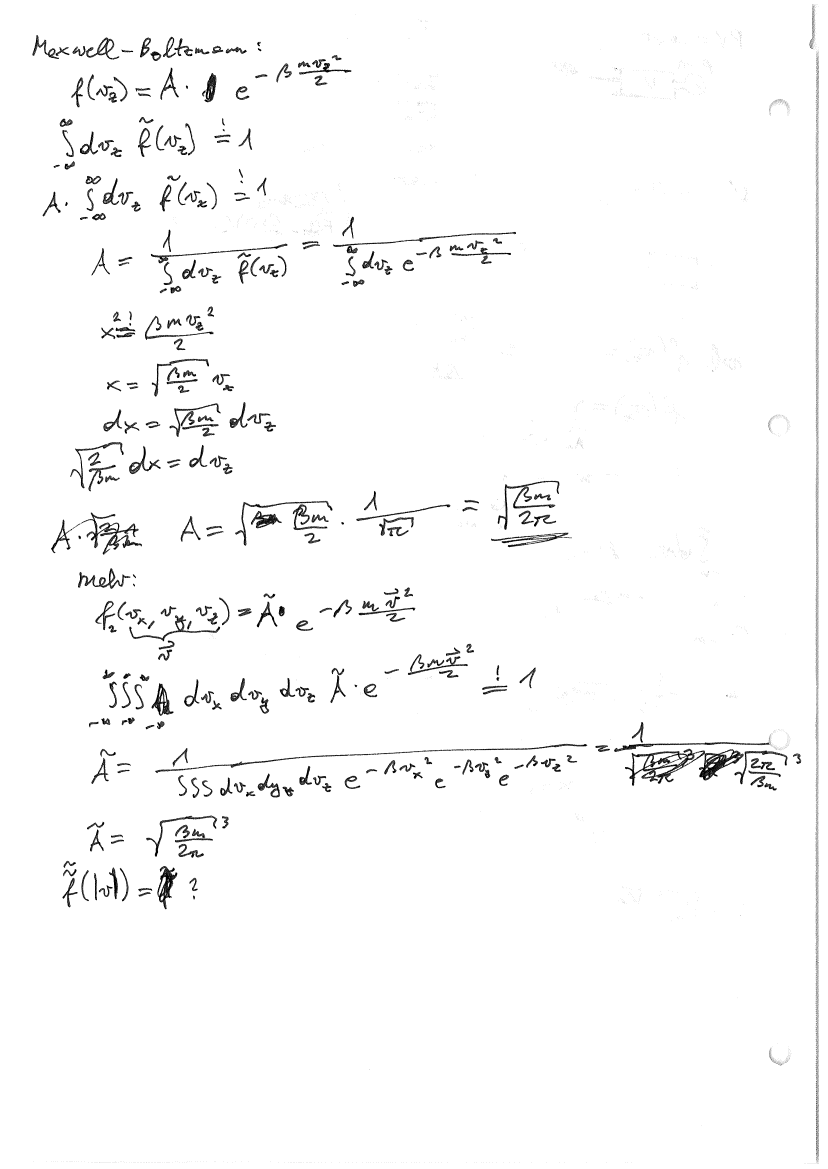 Maxwell-Boltzmann:
f(v_z) = A · e^{-β \frac{m v_z^2}{2}}
\int_{-∞}^{∞} dv_z \tilde{f}(v_z) \stackrel{!}{=} 1
A · \int_{-∞}^{∞} dv_z \tilde{f}(v_z) \stackrel{!}{=} 1
A = \frac{1}{\int_{-∞}^{∞} dv_z \tilde{f}(v_z)} = \frac{1}{\int_{-∞}^{∞} dv_z e^{-β \frac{m v_z^2}{2}}}
x^2 \stackrel{!}{=} \frac{β m v_z^2}{2}
x = \sqrt{\frac{βm}{2}} v_z
dx = \sqrt{\frac{βm}{2}} dv_z
\sqrt{\frac{2}{βm}} dx = dv_z
A = \sqrt{\frac{βm}{2}} · \frac{1}{\sqrt{π}} = \sqrt{\frac{βm}{2π}}
mehr:
f_2(v_x, v_y, v_z) = \tilde{A} · e^{-β \frac{m \vec{v}^2}{2}}
\vec{v}
\int_{-∞}^{∞} \int_{-∞}^{∞} \int_{-∞}^{∞} dv_x dv_y dv_z \tilde{A} · e^{-\frac{βm\vec{v}^2}{2}} \stackrel{!}{=} 1
\tilde{A} = \frac{1}{\int\int\int dv_x dy_y dv_z e^{-βv_x^2} e^{-βv_y^2} e^{-βv_z^2}} = \frac{1}{\sqrt{\frac{2π}{βm}}^3}
\tilde{A} = \sqrt{\frac{βm}{2π}}^3
\tilde{\tilde{f}}(|v|) = ?